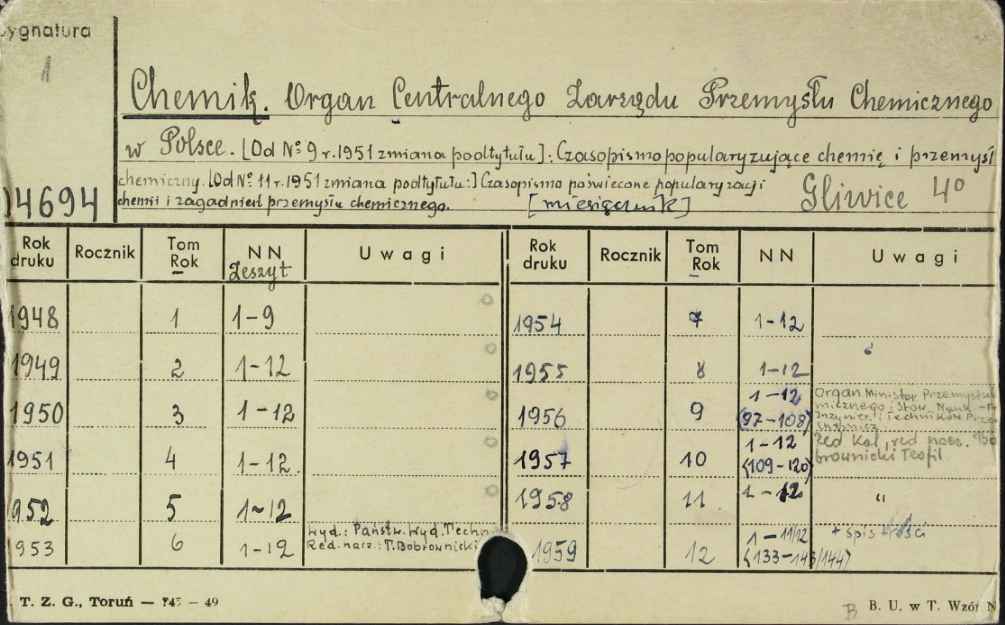 Sygnatura
1
Chemik. Organ Centralnego Zarządu Przemysłu Chemicznego
w Polsce. [Od № 9 r. 1951 zmiana podtytułu]: Czasopismo popularyzujące chemię i przemysł
chemiczny. [Od № 11 r. 1951 zmiana podtytułu:] Czasopismo poświęcone popularyzacji
chemii i zagadnień przemysłu chemicznego. [miesięcznik] Gliwice 4°
04694
Rok druku Rocznik Tom Rok NN Zeszyt Uwagi Rok druku Rocznik Tom Rok NN Uwagi
1948 1 1-9 1954 7 1-12
1949 2 1-12 1955 8 1-12
1950 3 1-12 1956 9 1-12 (97-108) Organ Minister Przemysłu
micznego i Stow. Nauk
Inżynier. i Techników Przem
1951 4 1-12 1957 10 1-12 (109-120) Red Kol, red nacz.
brownicki Teofil
1952 5 1-12 1958 11 1-12 "
1953 6 1-12 Wyd.: Państw. Wyd. Techn. 1959 12 1-11/12 (133-143/144) + spis treści
Red. nacz.: T. Bobrownicki
T. Z. G., Toruń — 745 - 49
B B. U. w T. Wzór N